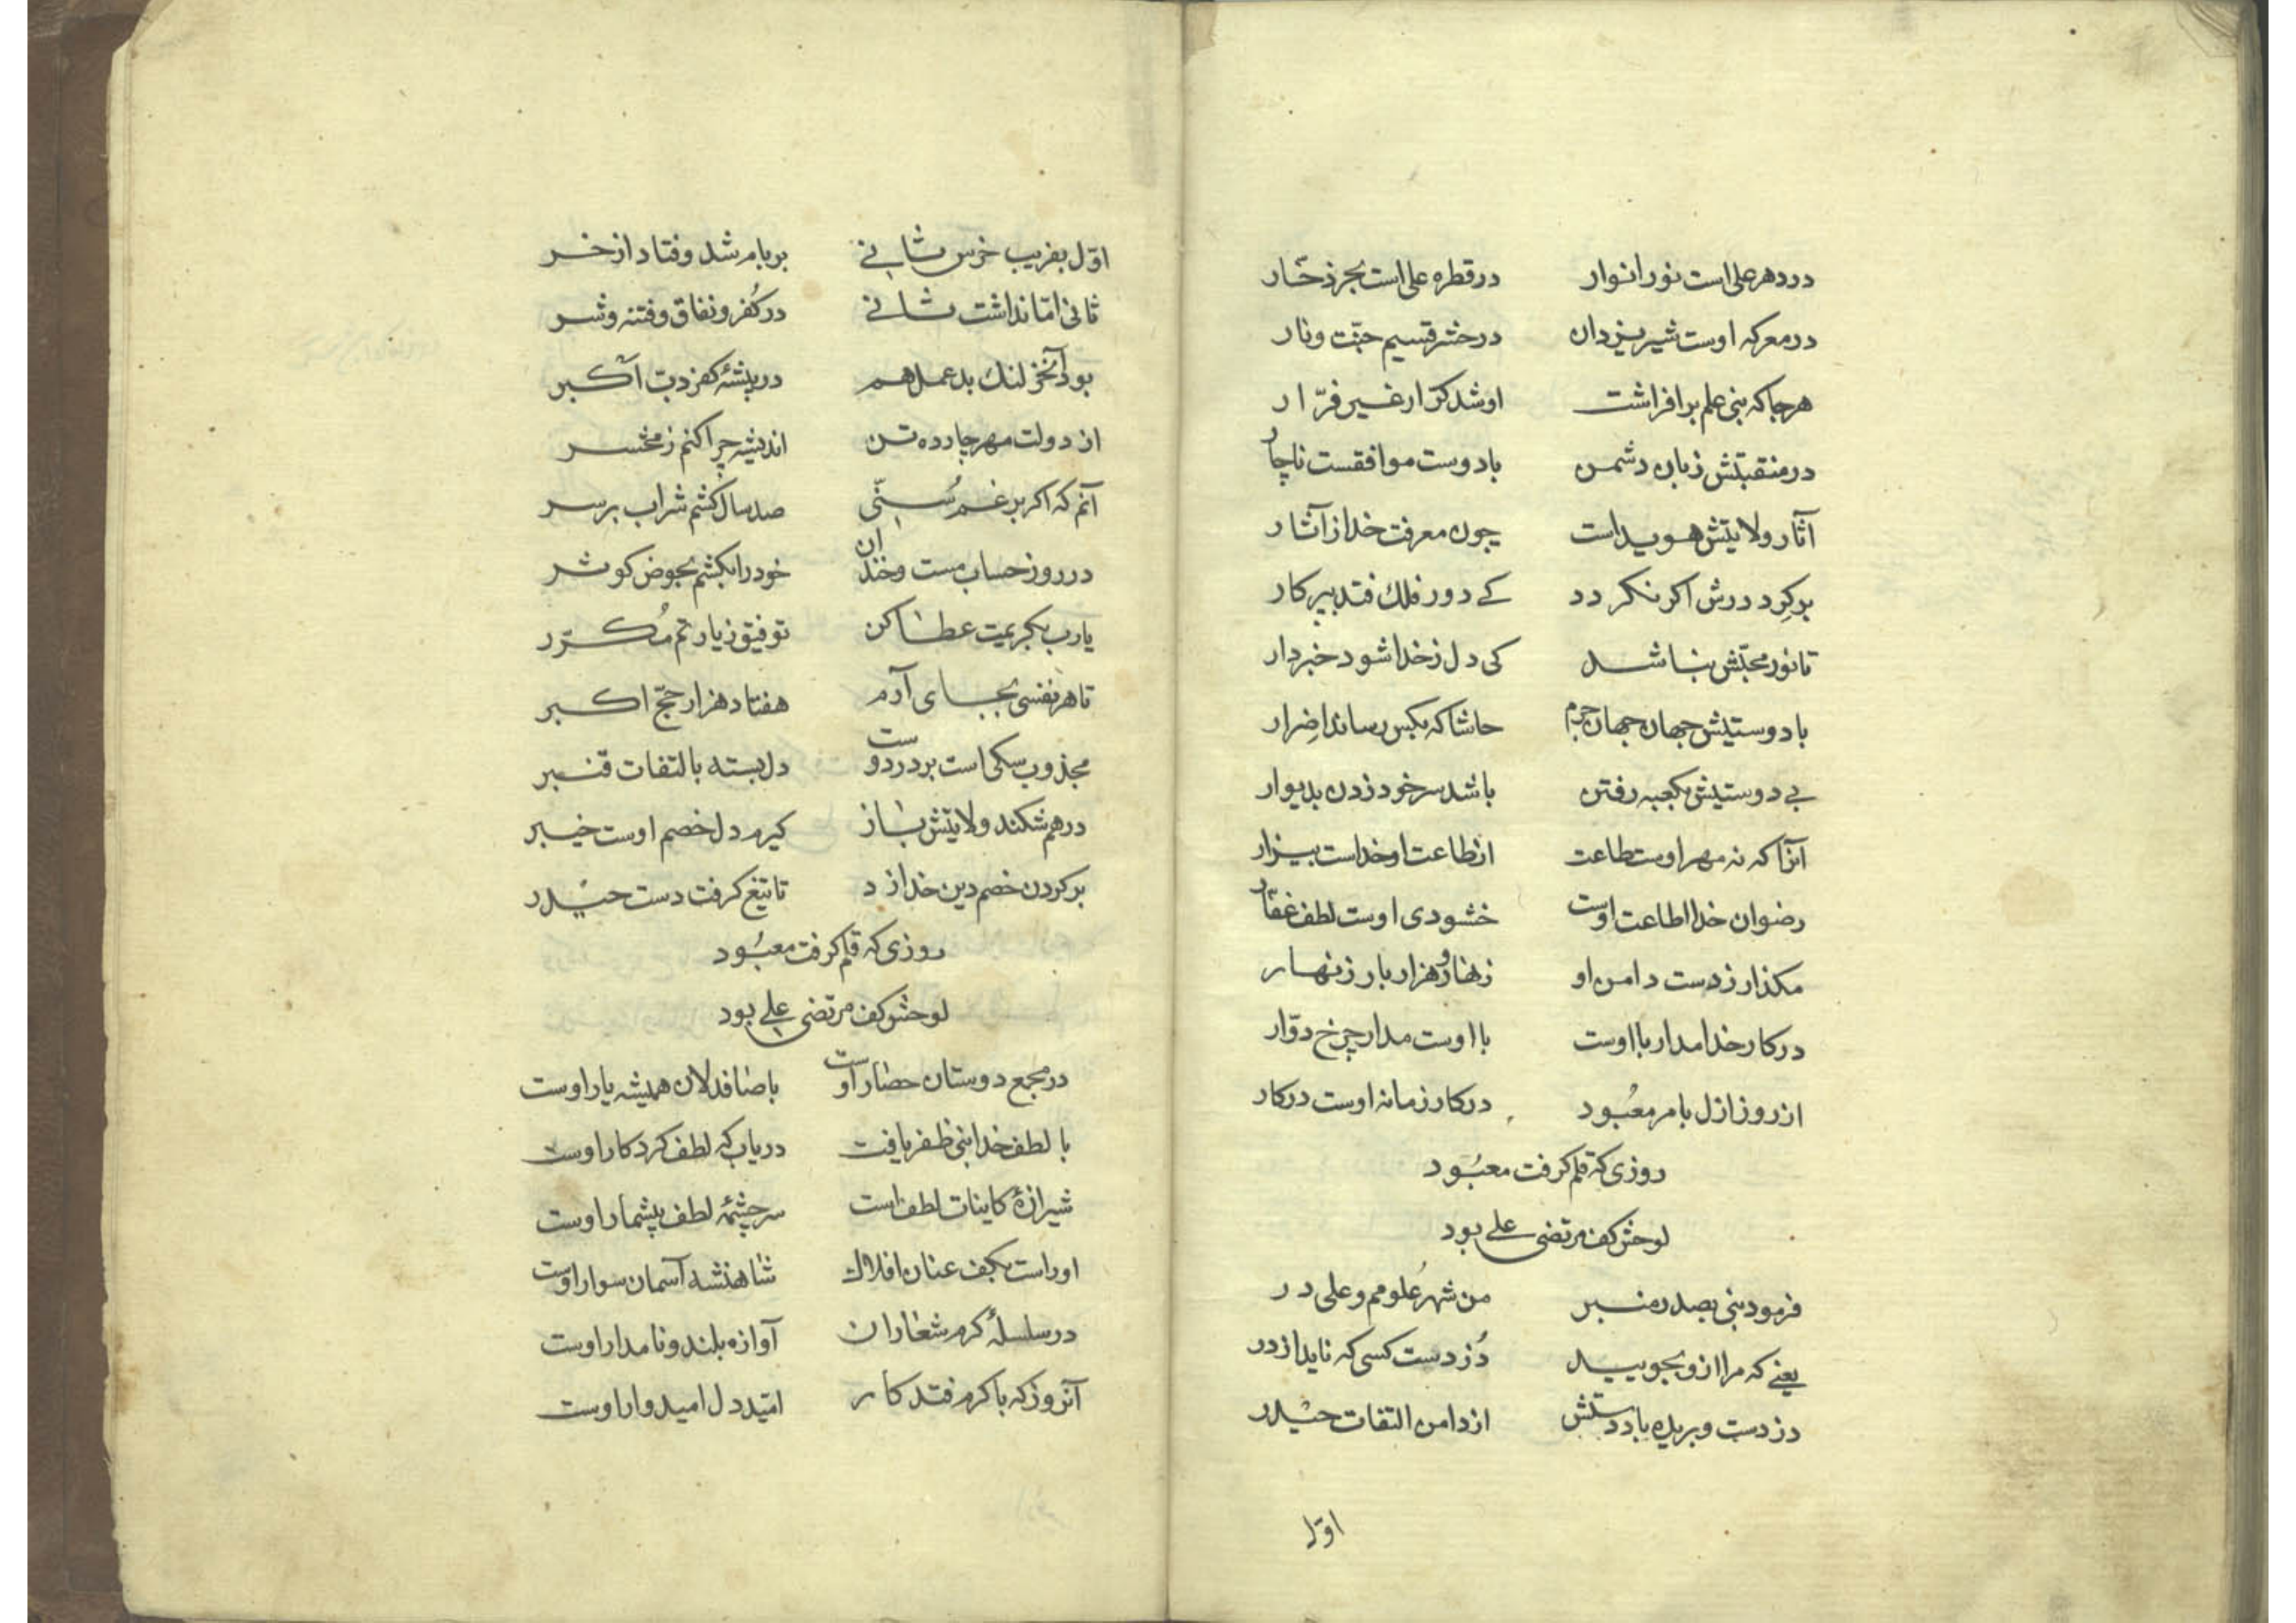 در دهر علی است نور انوار در قطره علی است بحر ذخّار
در معرکه اوست شیر یزدان در حشر قسیم جنّت و نار
هرجا که نبی علم بر افراشت او شد کرّار غیر فرّار
در منقبتش زبان دشمن با دوست موافقست ناچار
آثار ولایتش هویداست چون معرفت خدا ز آثار
بر کِرد درش اکر نکردد کے دور فلک فتد بپرکار
تا نور محبّتش نباشد کی دل ز خدا شود خبردار
با دوستیش جهان جهان جرم حاشا که بکس رساند اضرار
بے دوستیش بکعبه رفتن باشد سر خود زدن بدیوار
آنرا که نه مهر اوست طاعت از طاعت او خداست بیزار
رضوان خدا اطاعت اوست خشنودی اوست لطف غفّار
مکذار ز دست دامن او زنهار و هزار بار زنهار
در کار خدا مدار با اوست با اوست مدار چرخ دوّار
از روز ازل بامر معبُود در کار زمانه اوست در کار
روزی که قلم کرفت معبُود
لوحش کف مرتضی علے بود
فرمود نبی بصدر منبر من شهر عُلومم و علی در
یعنے که مرا ازو بجویید دُزدست کسی که ناید از در
دزدست و بریده باد دستش از دامن التفات حیدر
اوّل
اوّل بفریب خرس ثانے بر بام شد و فتاد از خر
ثانی امّا نداشت ثانے در کُفر و نفاق و فتنه و شر
بود آنخر لنک بد عمل هم در بیشهٔ کفر دبّ اکبر
از دولت مهر چارده تن اندیشه چرا کنم ز محشر
آنم که اکر برغم سُنّی صد سال کشم شراب بر سر
در روز حساب مست و خندان خود را بکشم بحوض کوثر
یارب بکریمیت عطا کن توفیق زیارتم مُکرّر
تا هر نفسی بجای آرم هفتاد هزار حجّ اکبر
مجذوب سکی است بر در دوست دل بسته بالتفات قنبر
در هم شکند ولایتش باز کیرم دل خصم اوست خیبر
بر کردن خصم دین خدا زد تا تیغ کرفت دست حیدر
روزی که قلم کرفت معبُود
لوحش کف مرتضی علے بود
در مجمع دوستان حصار اوست با صافدلان همیشه یار اوست
با لطف خدا نبی ظفر یافت دریاب که لطف کردکار اوست
شیرازهٔ کاینات لطف است سرچشمهٔ لطف بیشمار اوست
او راست بکف عنان افلاک شاهنشه آسمان سوار اوست
در سلسلهٔ کرم شعاران آوازه بلند و نامدار اوست
آنروز که با کرم فتد کار امّید دل امیدوار اوست